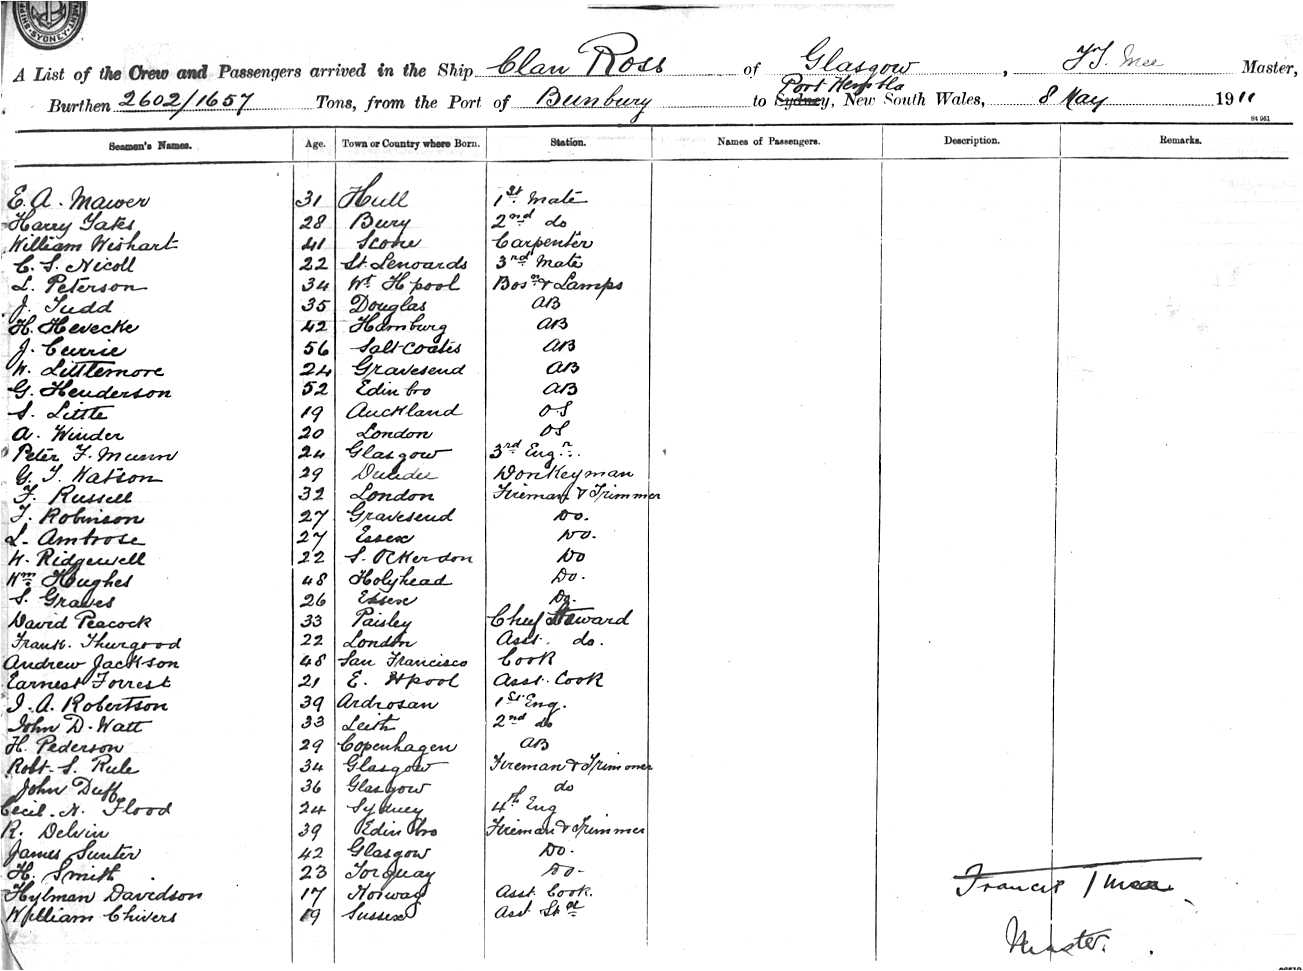 SYDNEY
A List of the Crew and Passengers arrived in the Ship Clan Ross of Glasgow, Master,
Burthen 2602/1657 Tons, from the Port of Bunbury to Sydney, Port Kembla New South Wales, 8 May 1911
84 961
Seamen's Names. Age. Town or Country where Born. Station. Names of Passengers. Description. Remarks.
E. A. Mawer 31 Hull 1st Mate
Harry Yates 28 Bury 2nd do
William Wishart 41 Scone Carpenter
C. S. Nicoll 22 St. Lenoards 3rd Mate
L. Peterson 34 Wt Hpool Bosn & Lamps
J. Judd 35 Douglas AB
H. Hevecke 42 Hamburg AB
J. Currie 56 Saltcoates AB
W. Littlemore 24 Gravesend AB
G. Henderson 52 Edinbro AB
S. Little 19 Auckland OS
A. Winder 20 London OS
Peter F. Munn 24 Glasgow 3rd Engr.
G. T. Watson 29 Dundee Donkeyman
F. Russell 32 London Fireman & Trimmer
T. Robinson 27 Gravesend Do.
L. Ambrose 27 Essex Do.
W. Ridgewell 22 S. Ockerdon Do
Wm Hughes 48 Holyhead Do.
S. Graves 26 Essex Do.
David Peacock 33 Paisley Chief Steward
Frank. Thurgood 22 London Asst. do.
Andrew Jackson 48 San Francisco Cook
Earnest Forrest 21 E. Hpool Asst. Cook
J. A. Robertson 39 Ardrosan 1st Eng.
John D. Watt 33 Leith 2nd do
H. Pederson 29 Copenhagen AB
Robt. S. Rule 34 Glasgow Fireman & Trimmer
John Duff 36 Glasgow do
Cecil. N. Flood 24 Sydney 4th Eng
R. Delvin 39 Edinbro Fireman & Trimmer
James Sunter 42 Glasgow Do.
H. Smith. 23 Torquay Do.
Hylman Davidson 17 Norway Asst. Cook.
William Chivers 19 Sussex Asst Std
Francis Mee
Master.